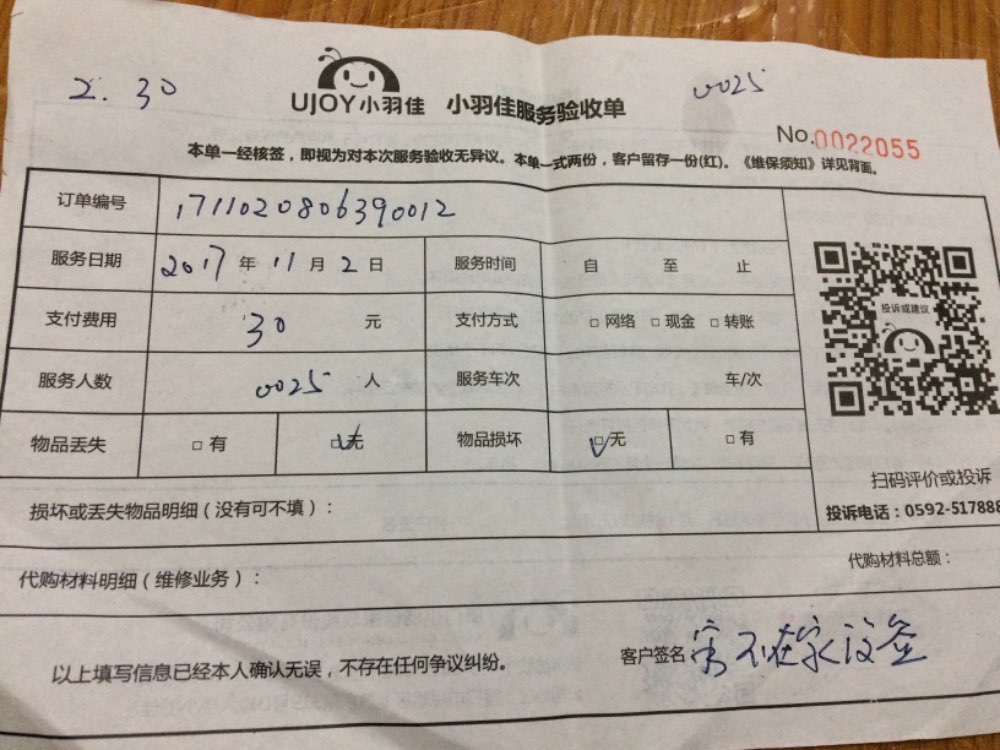 2. 30
0025
UJOY小羽佳 小羽佳服务验收单
No.0022055
本单一经核签，即视为对本次服务验收无异议。本单一式两份，客户留存一份(红)。《维保须知》详见背面。
订单编号 171102080639001​2
服务日期 2017年11月2日 服务时间 自 至 止
支付费用 30 元 支付方式 □网络 □现金 □转账
服务人数 0025 人 服务车次 车/次
物品丢失 □有 □无 物品损坏 □无 □有
投诉或建议
扫码评价或投诉
投诉电话：0592-517888
损坏或丢失物品明细（没有可不填）：
代购材料明细（维修业务）： 代购材料总额：
以上填写信息已经本人确认无误，不存在任何争议纠纷。 客户签名 客不在家没签